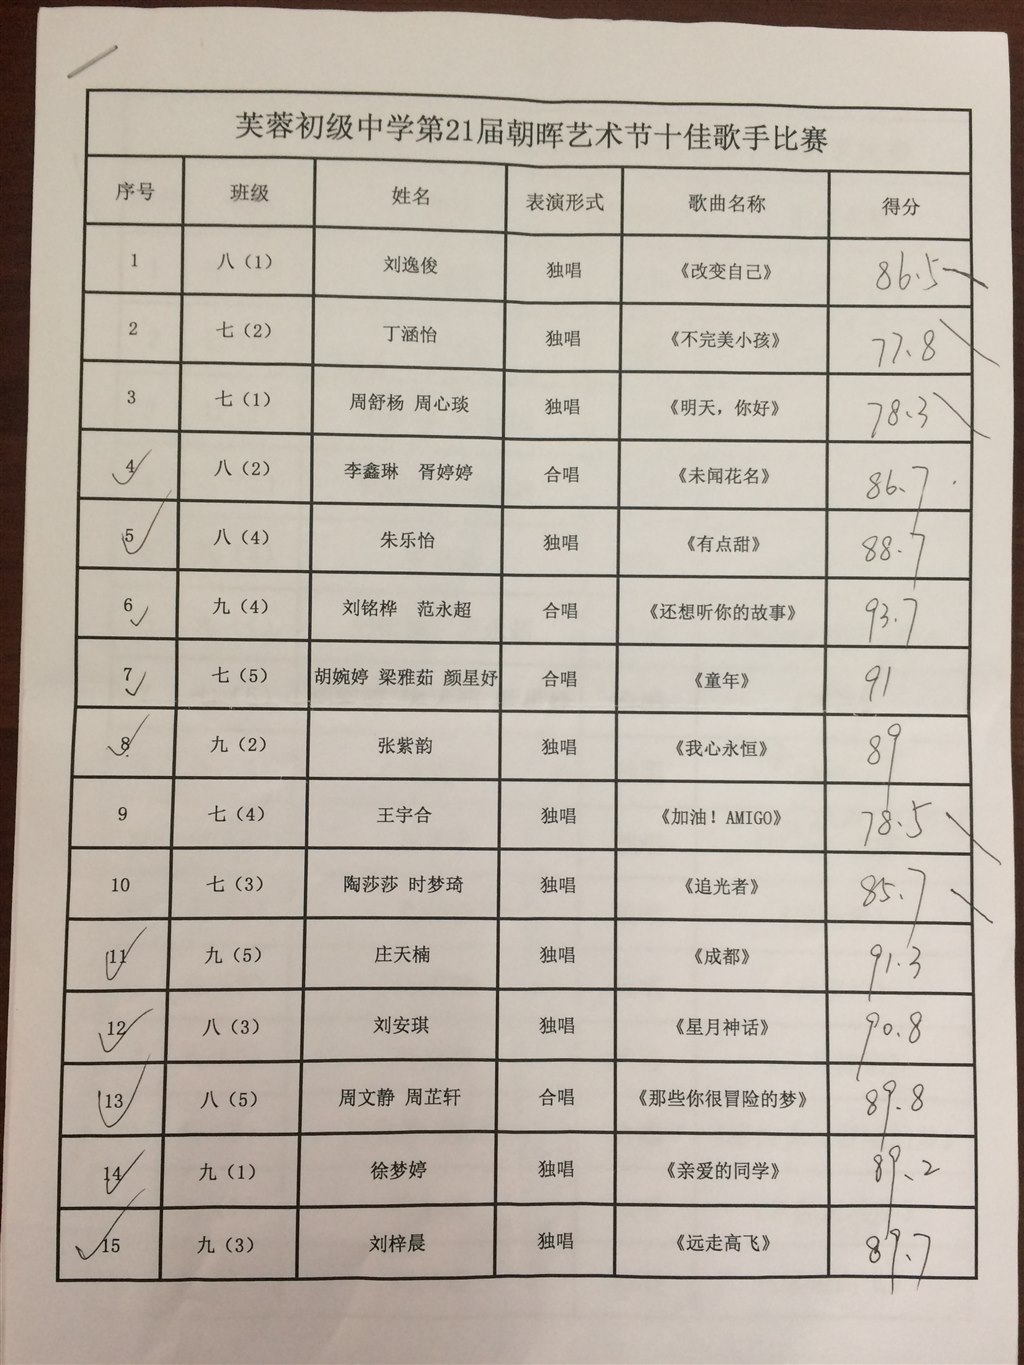 芙蓉初级中学第21届朝晖艺术节十佳歌手比赛
序号 班级 姓名 表演形式 歌曲名称 得分
1 八（1） 刘逸俊 独唱 《改变自己》 86.5
2 七（2） 丁涵怡 独唱 《不完美小孩》 77.8
3 七（1） 周舒杨 周心琰 独唱 《明天，你好》 78.3
4 八（2） 李鑫琳 胥婷婷 合唱 《未闻花名》 86.7
5 八（4） 朱乐怡 独唱 《有点甜》 88.7
6 九（4） 刘铭桦 范永超 合唱 《还想听你的故事》 93.7
7 七（5） 胡婉婷 梁雅茹 颜星妤 合唱 《童年》 91
8 九（2） 张紫韵 独唱 《我心永恒》 89
9 七（4） 王宇合 独唱 《加油！AMIGO》 78.5
10 七（3） 陶莎莎 时梦琦 独唱 《追光者》 85.7
11 九（5） 庄天楠 独唱 《成都》 91.3
12 八（3） 刘安琪 独唱 《星月神话》 90.8
13 八（5） 周文静 周芷轩 合唱 《那些你很冒险的梦》 89.8
14 九（1） 徐梦婷 独唱 《亲爱的同学》 89.2
15 九（3） 刘梓晨 独唱 《远走高飞》 89.7